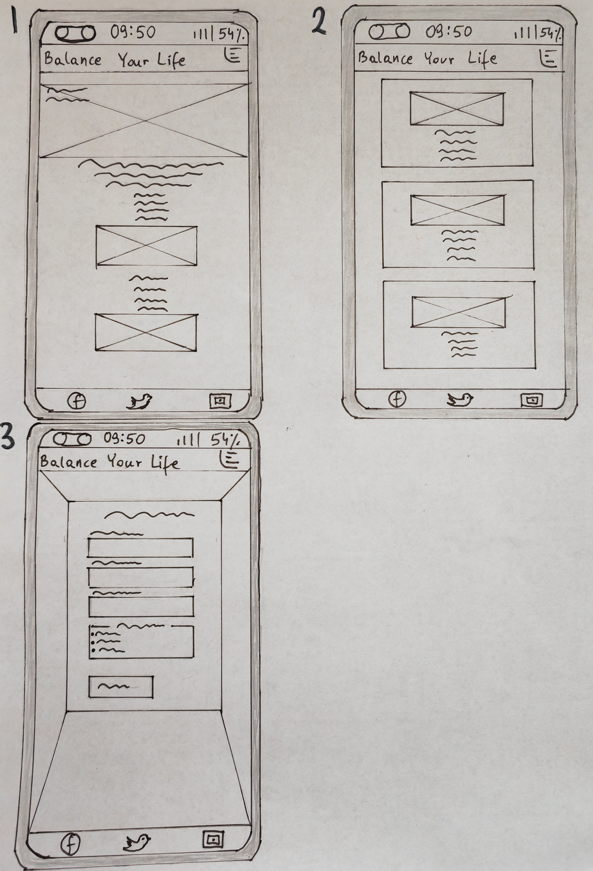 1
09:50 54%
Balance Your Life
f
2
09:50 54%
Balance Your Life
f
3
09:50 54%
Balance Your Life
f